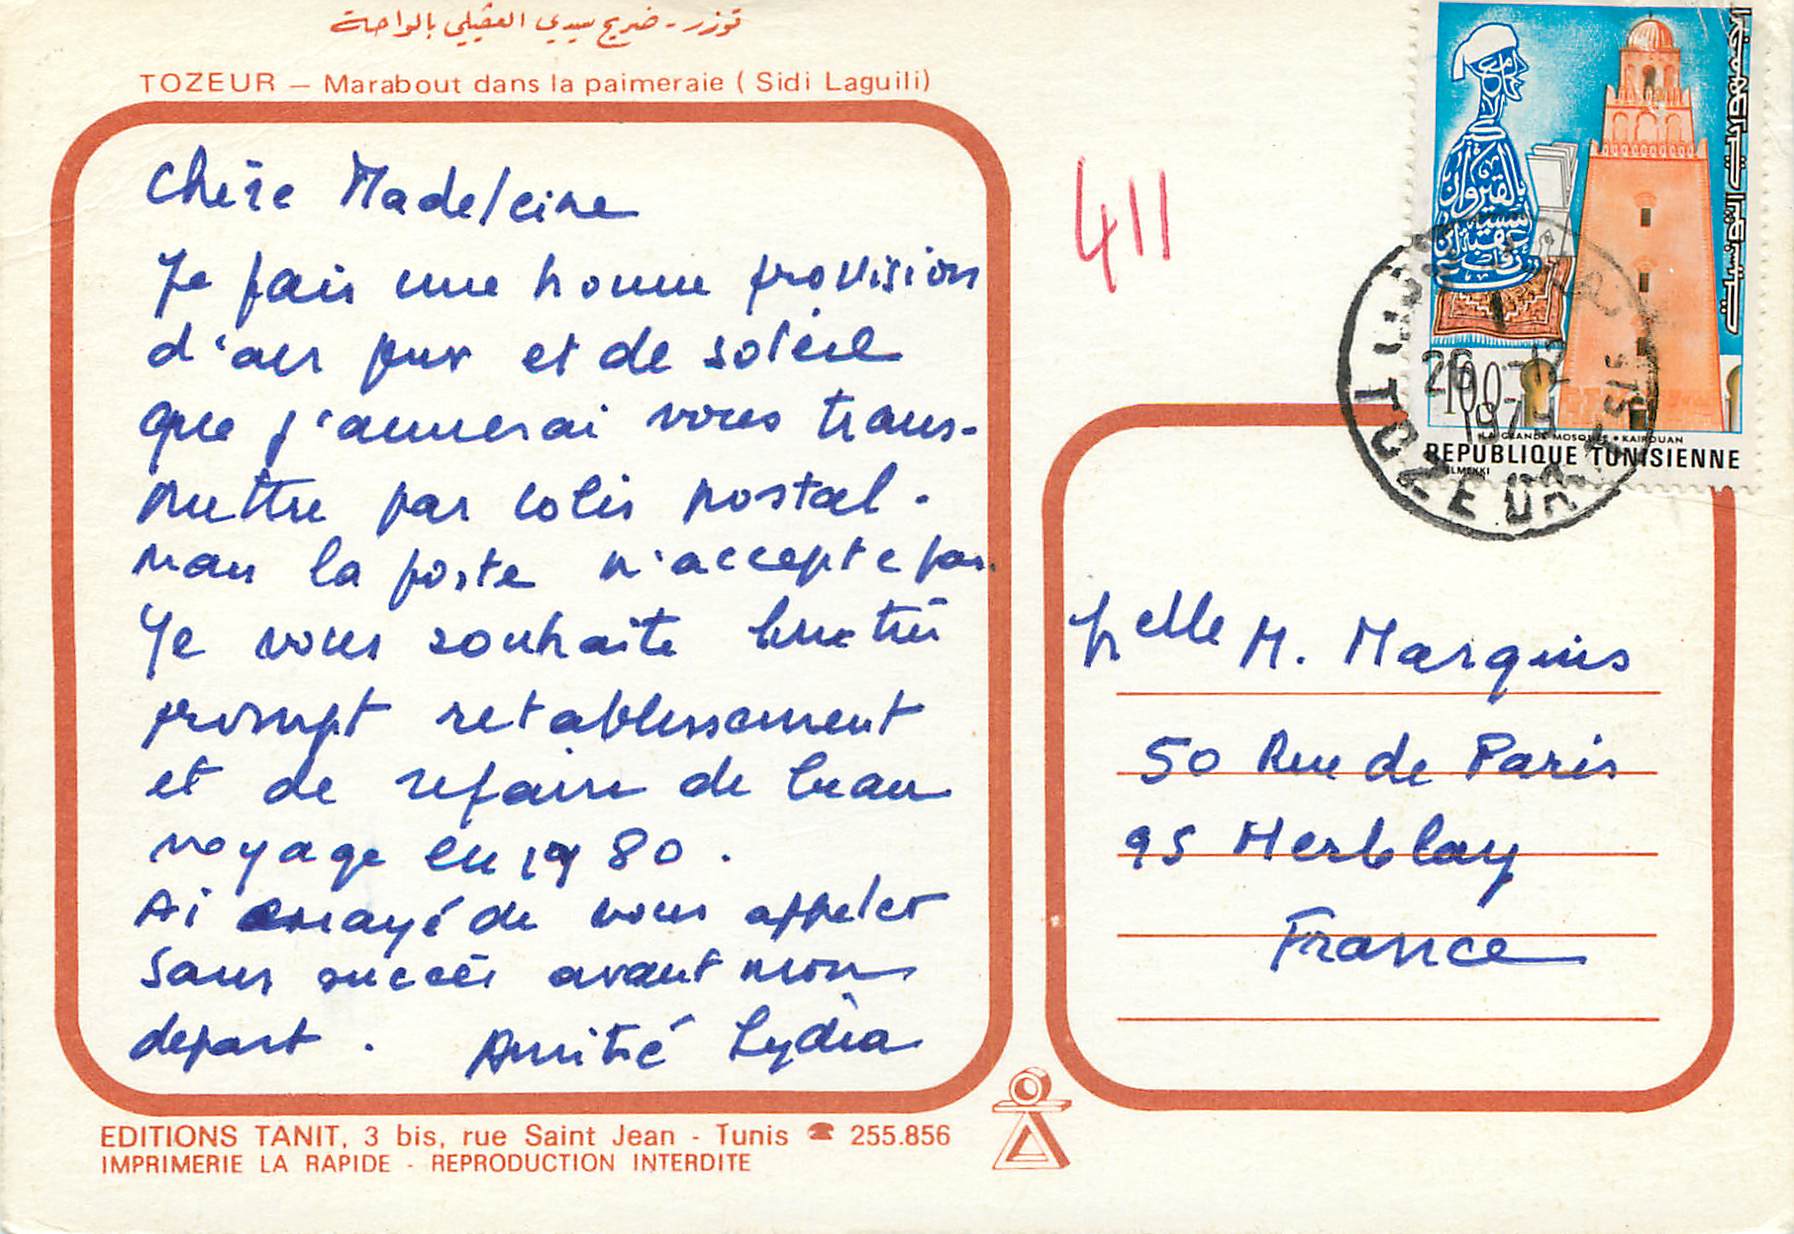 توزر - ضريح سيدي العڤيلي بالواحة
TOZEUR — Marabout dans la paimeraie ( Sidi Laguili)
Chère Madeleine
Je fais une bonne provision
d'air pur et de soleil
que j'aimerai vous trans-
mettre par colis postal.
mais la poste n'accepte pas.
Je vous souhaite une très
prompt retablissement
et de refaire de beau
voyage en 1980.
Ai essayé de vous appeler
sans succès avant mon
depart. Amitié Lydia
EDITIONS TANIT, 3 bis, rue Saint Jean - Tunis ☎ 255.856
IMPRIMERIE LA RAPIDE - REPRODUCTION INTERDITE
411
الجمهورية التونسية
جامع
بالقيروان
عقبة ابن
100
LA GRANDE MOSQUÉE • KAIROUAN
REPUBLIQUE TUNISIENNE
ELMEKKI
TOZEUR
26 -12
1979
Melle M. Marquis
50 Rue de Paris
95 Herblay
France